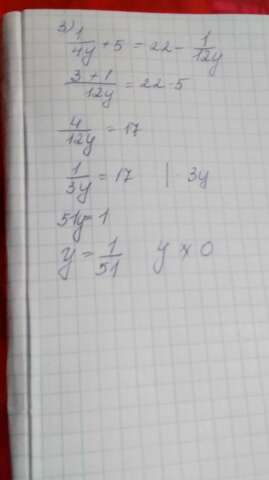 3) 1/4y + 5 = 22 - 1/12y
3 + 1/12y = 22 - 5
4/12y = 17
1/3y = 17 | 3y
51y = 1
y = 1/51 y ≠ 0